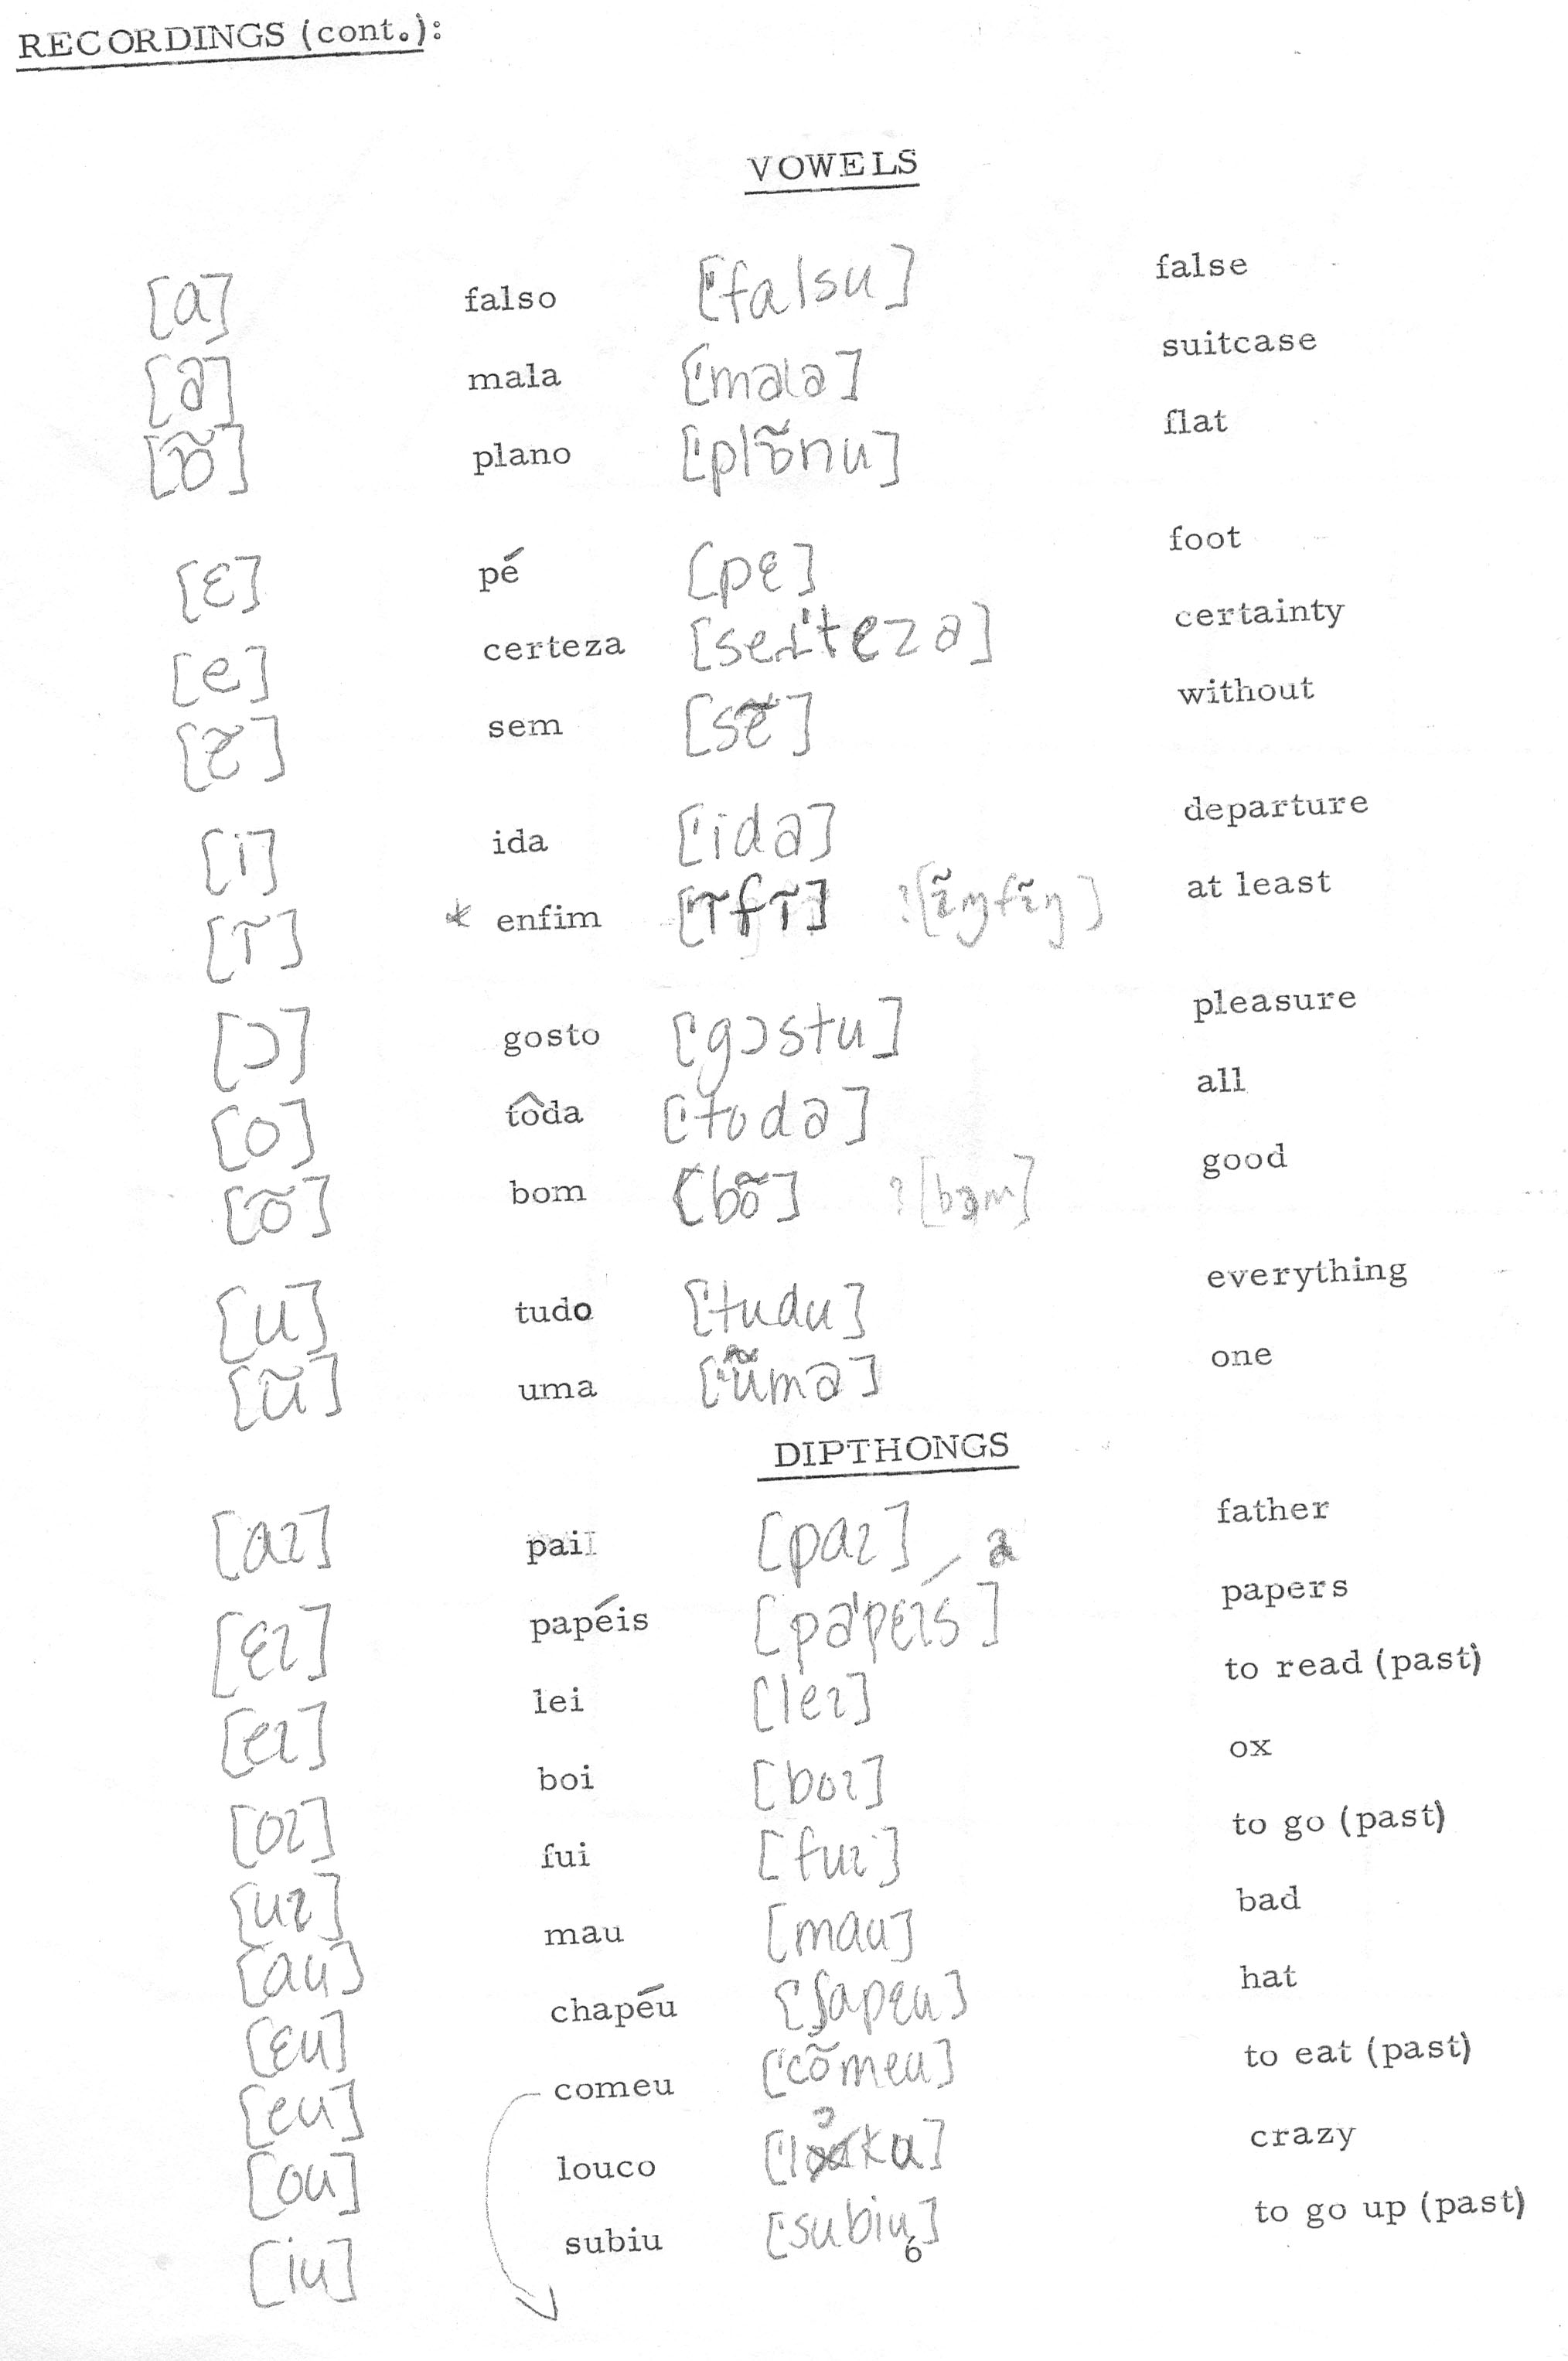 RECORDINGS (cont.):
VOWELS
[a] falso ['falsu] false
[ə] mala ['mələ] suitcase
[ɐ̃] plano ['plɐ̃nu] flat
[ɛ] pé [pɛ] foot
[e] certeza ['tezə] certainty
[ẽ] sem [sẽ] without
[i] ida ['idə] departure
[ĩ] * enfim [ĩfĩ] ?[ĩŋfĩŋ] at least
[ɔ] gosto ['gɔstu] pleasure
[o] tôda ['todə] all
[õ] bom [bõ] good
[u] tudo ['tudu] everything
[ũ] uma ['ũmə] one
DIPTHONGS
[aɪ] pai [paɪ] father
[ɛɪ] papéis [pə'pɛɪs] a papers
[eɪ] lei [leɪ] to read (past)
[oɪ] boi [boɪ] ox
[uɪ] fui [fuɪ] to go (past)
[au] mau [mau] bad
[ɛu] chapéu [ʃapɛu] hat
[eu] comeu ['cõmeu] to eat (past)
[ou] louco crazy
[iu] subiu ['subiu] to go up (past)
6